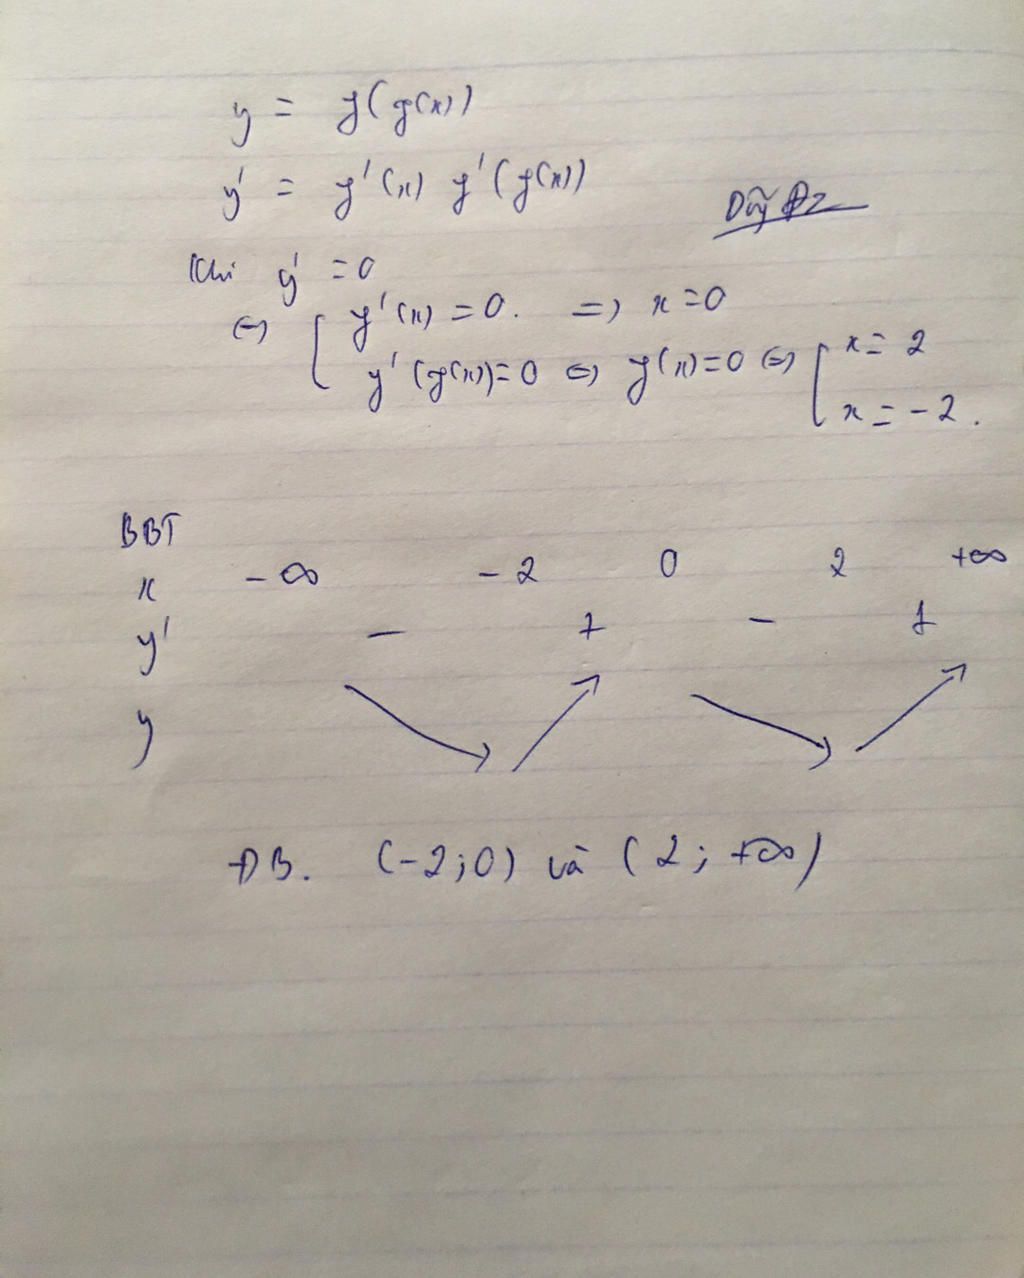 y = f(f(x))
y' = f'(x) f'(f(x))
Khi y' = 0
⇔ [ f'(x) = 0. => x = 0
f'(f(x)) = 0 ⇔ f(x) = 0 ⇔ [ x = 2
x = -2.
BBT
x -∞ -2 0 2 +∞
y' - + - +
y
ĐB. (-2; 0) và (2; +∞)